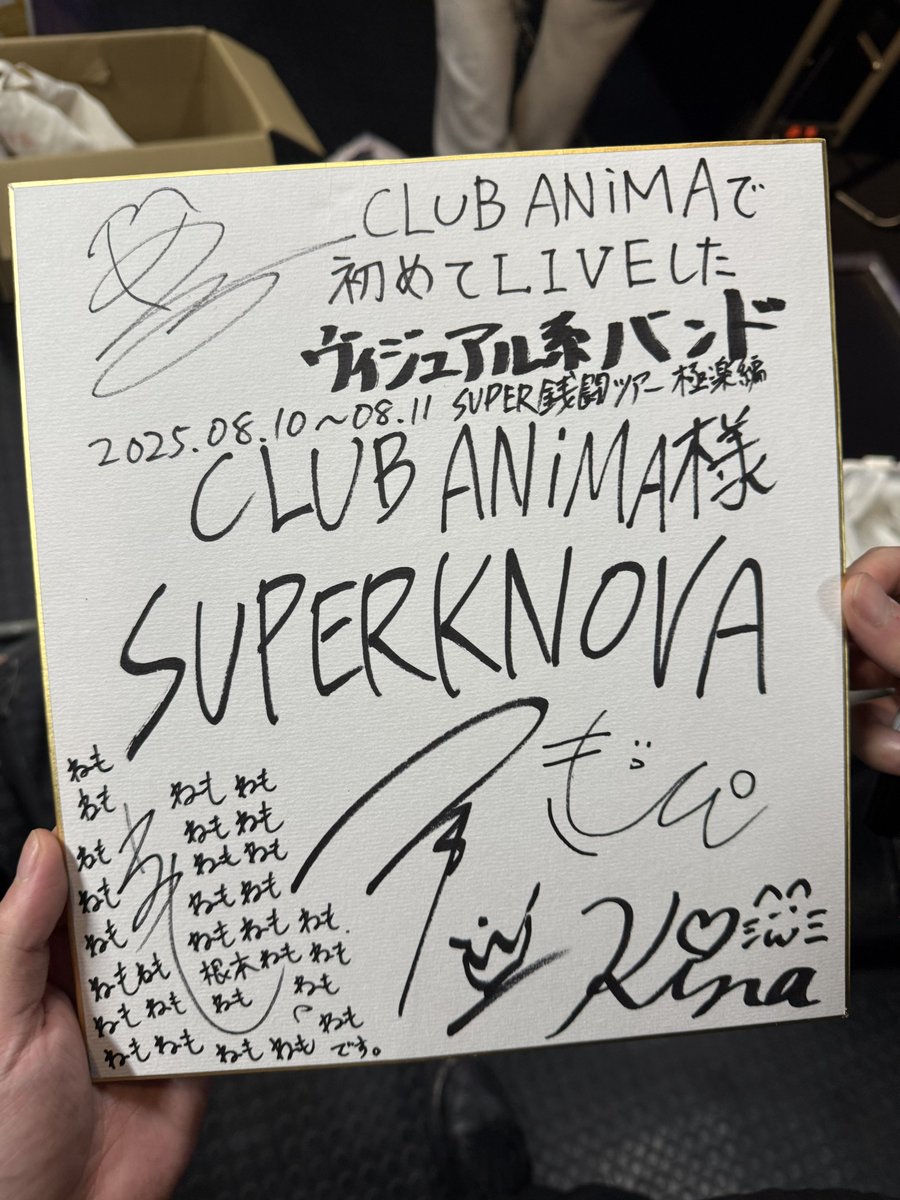 CLUB ANiMAで
初めてLIVEした
ヴィジュアル系バンド
2025.08.10〜08.11 SUPER銭闘ツアー 極楽編
CLUB ANiMA様
SUPERKNOVA
ねも
ねも ねも ねも
ねも ねも
ねも ねも ねも
ねも ねも ねも
ねも ねも ねも ねも
ねもねも 根本 ねも ねも
ねも ねも ねも ねも
ねも ねも ねも ねも ねも です。
ぎぃぴ
Kina